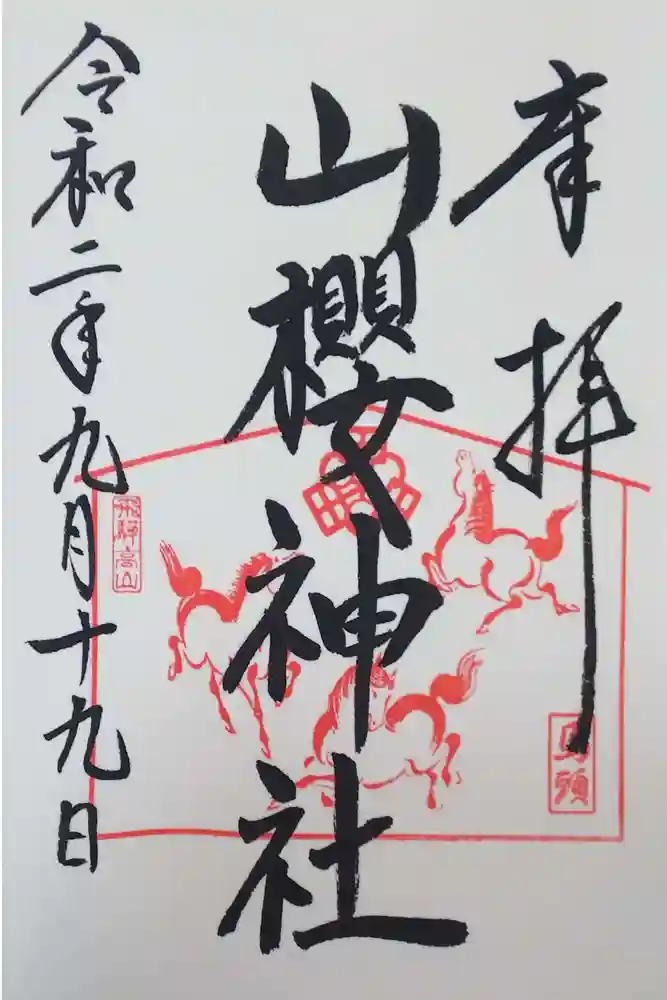 奉拝
山櫻神社
令和二年九月十九日
飛騨高山